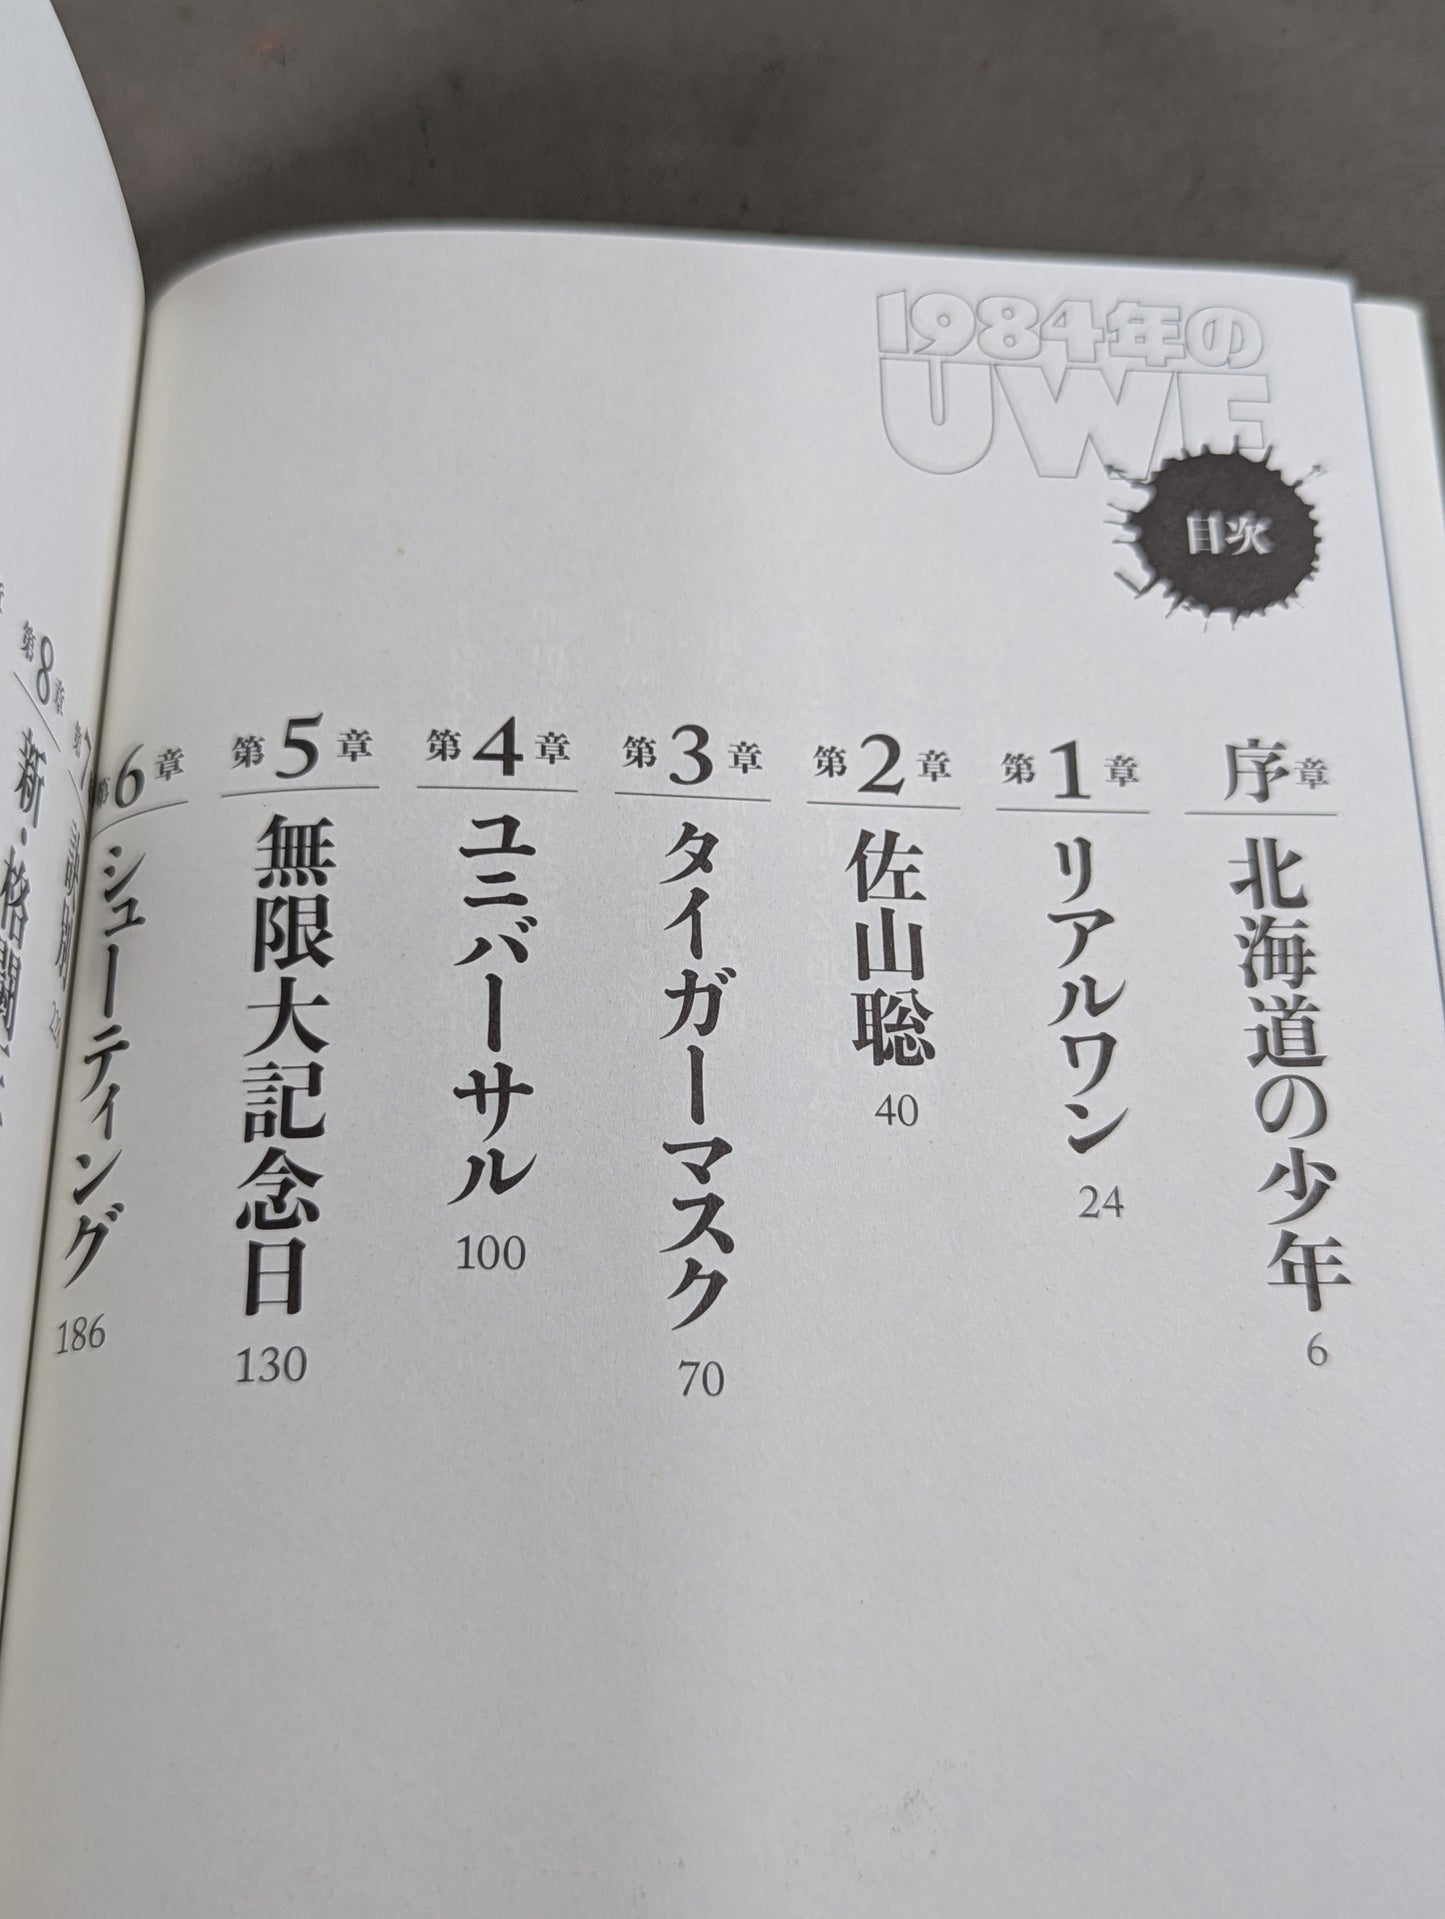 1984年の
UWF
目次
序章 北海道の少年 6
第1章 リアルワン 24
第2章 佐山聡 40
第3章 タイガーマスク 70
第4章 ユニバーサル 100
第5章 無限大記念日 130
第6章 シューティング 186
第7
第8章 新・格闘